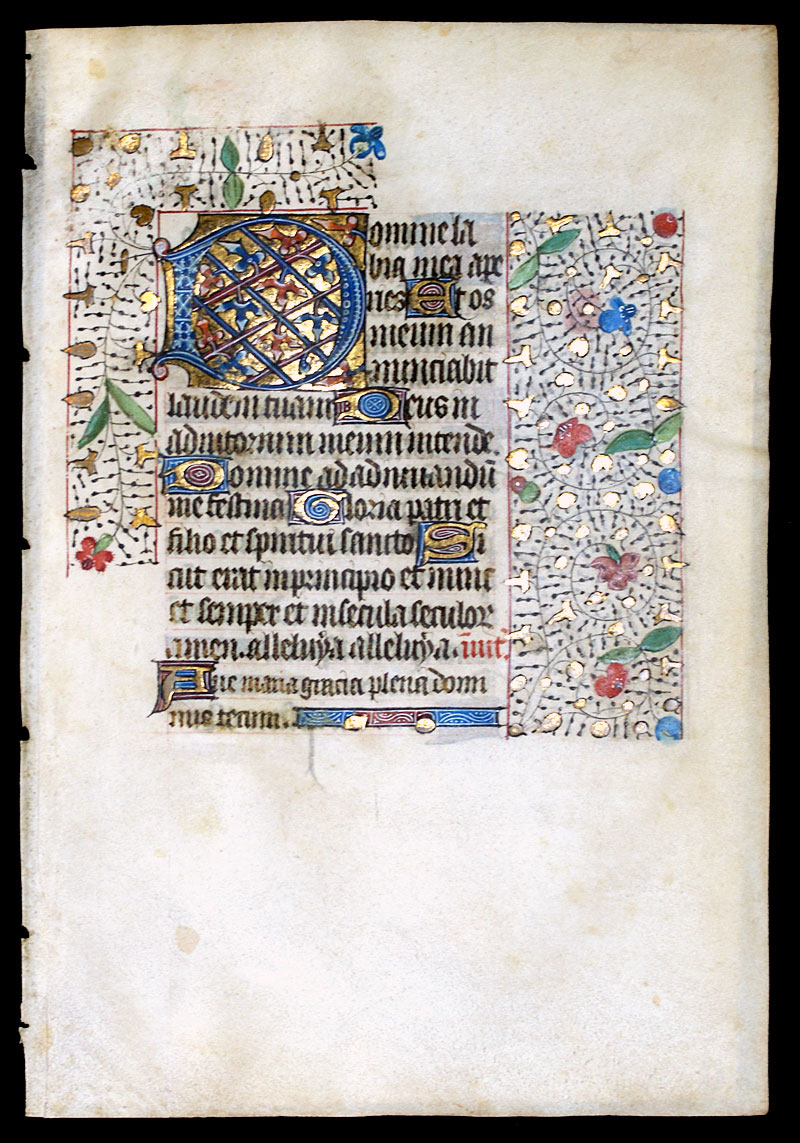 Domine la
bia mea ape
ries Et os
meum an
nunciabit
laudem tuam Deus in
adiutorium meum intende.
Domine ad adiuuandū
me festina Gloria patri et
filio et spiritui sancto Si
cut erat in principio et nunc
et semper et in secula seculor
amen. alleluya alleluya. īuit.
Aue maria gracia plena domi
nus tecum.